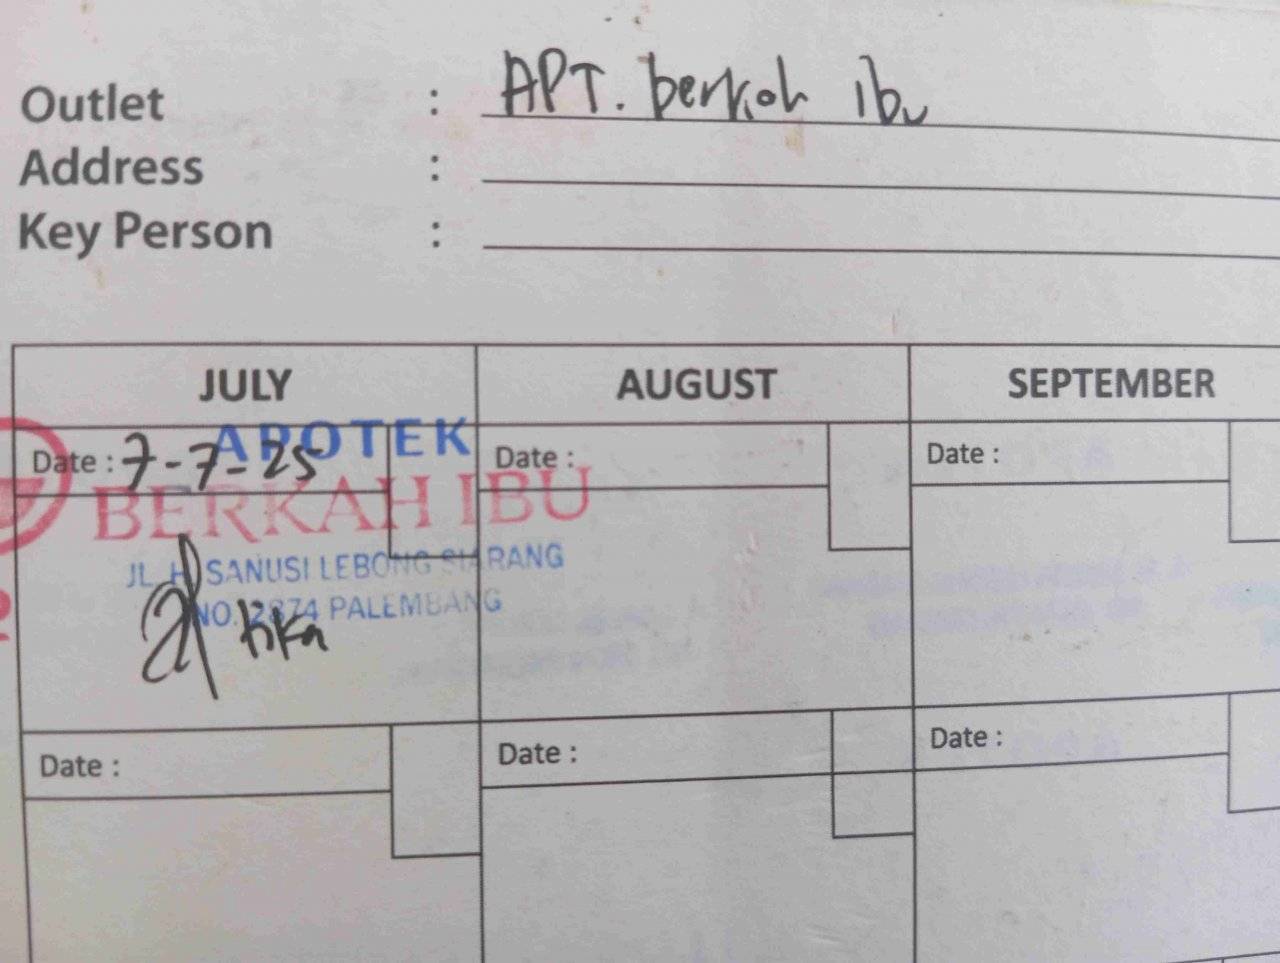 Outlet : APT. berkah ibu
Address :
Key Person :
JULY AUGUST SEPTEMBER
Date : 7-7-25 Date : Date :
APOTEK
BERKAH IBU
JL. H. SANUSI LEBONG SIARANG
NO. 2874 PALEMBANG
kika
Date : Date : Date :